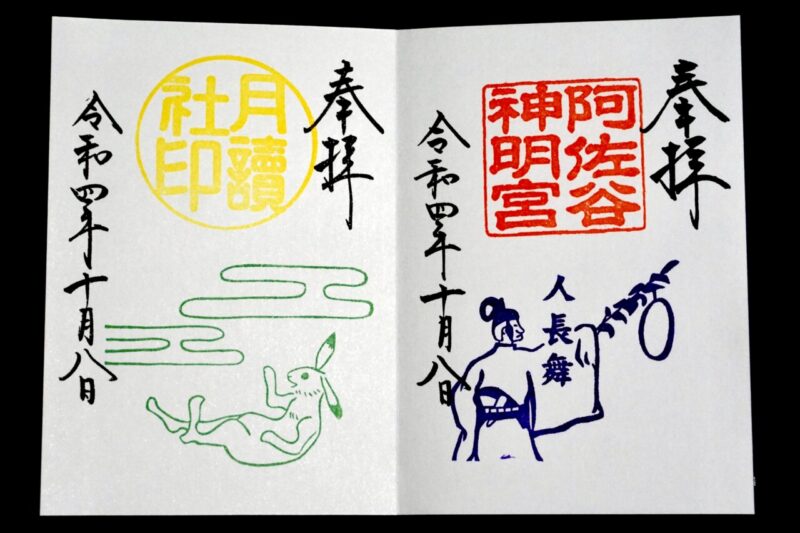 奉拝
阿佐谷
神明宮
人長舞
令和四年十月八日
奉拝
月讀
社印
令和四年十月八日